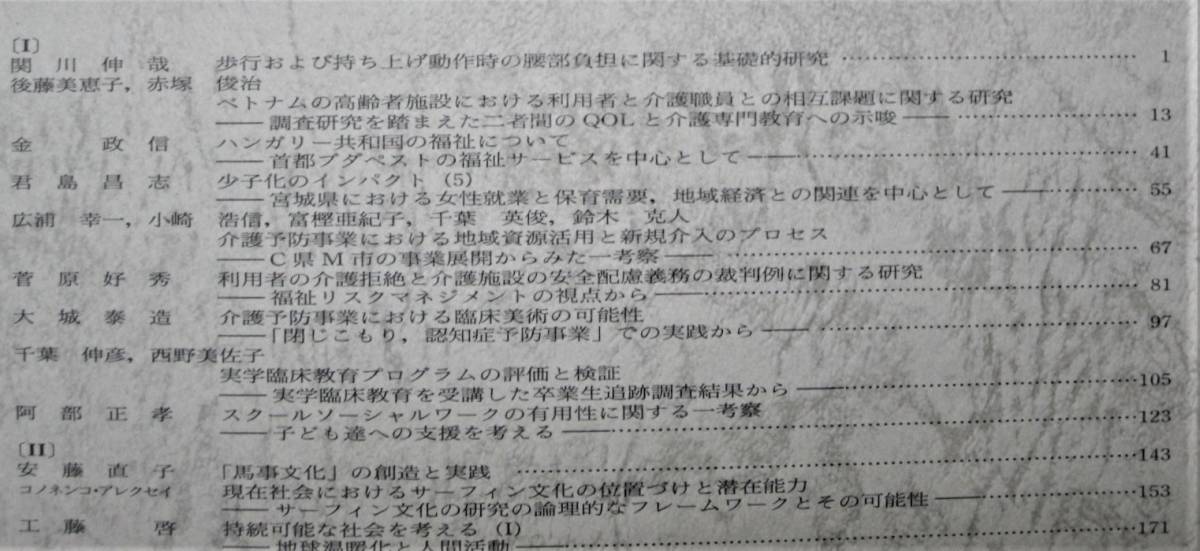 〔I〕
関川伸哉 歩行および持ち上げ動作時の腰部負担に関する基礎的研究 …… 1
後藤美恵子，赤塚 俊治
ベトナムの高齢者施設における利用者と介護職員との相互課題に関する研究
――調査研究を踏まえた二者間のQOLと介護専門教育への示唆―― …… 13
金 政信 ハンガリー共和国の福祉について
――首都ブダペストの福祉サービスを中心として―― …… 41
君島昌志 少子化のインパクト（5）
――宮城県における女性就業と保育需要，地域経済との関連を中心として―― …… 55
広浦 幸一，小崎 浩信，富樫亜紀子，千葉 英俊，鈴木 克人
介護予防事業における地域資源活用と新規介入のプロセス
――C県M市の事業展開からみた一考察―― …… 67
菅原好秀 利用者の介護拒絶と介護施設の安全配慮義務の裁判例に関する研究
――福祉リスクマネジメントの視点から―― …… 81
大城泰造 介護予防事業における臨床美術の可能性
――「閉じこもり，認知症予防事業」での実践から―― …… 97
千葉 伸彦，西野美佐子
実学臨床教育プログラムの評価と検証
――実学臨床教育を受講した卒業生追跡調査結果から―― …… 105
阿部正孝 スクールソーシャルワークの有用性に関する一考察
――子ども達への支援を考える―― …… 123
〔II〕
安藤直子 「馬事文化」の創造と実践 …… 143
コノネンコ・アレクセイ 現在社会におけるサーフィン文化の位置づけと潜在能力
――サーフィン文化の研究の論理的なフレームワークとその可能性―― …… 153
工藤 啓 持続可能な社会を考える（I） …… 171
――地球温暖化と人間活動――